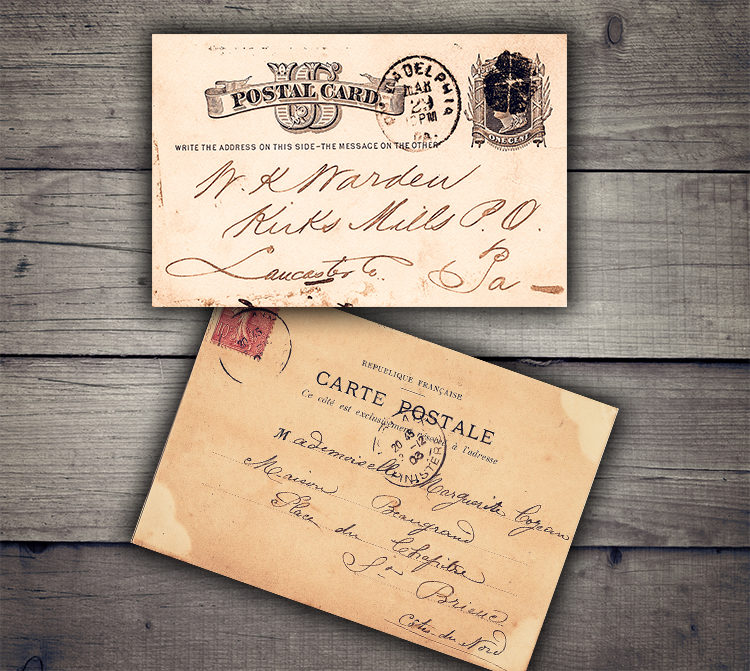 U S
POSTAL CARD
PHILADELPHIA
MAR
29
PM
PA.
ONE CENT
WRITE THE ADDRESS ON THIS SIDE-THE MESSAGE ON THE OTHER
W. K Warden
Kirks Mills P.O.
Lancaster Co. Pa
REPUBLIQUE FRANÇAISE
CARTE POSTALE
Ce côté est exclusivement réservé à l'adresse
FINISTERE
Mademoiselle Marguerite Cozean
Maison Beaugrand
Place du Chapitre
St Brieuc
Côtes-du-Nord